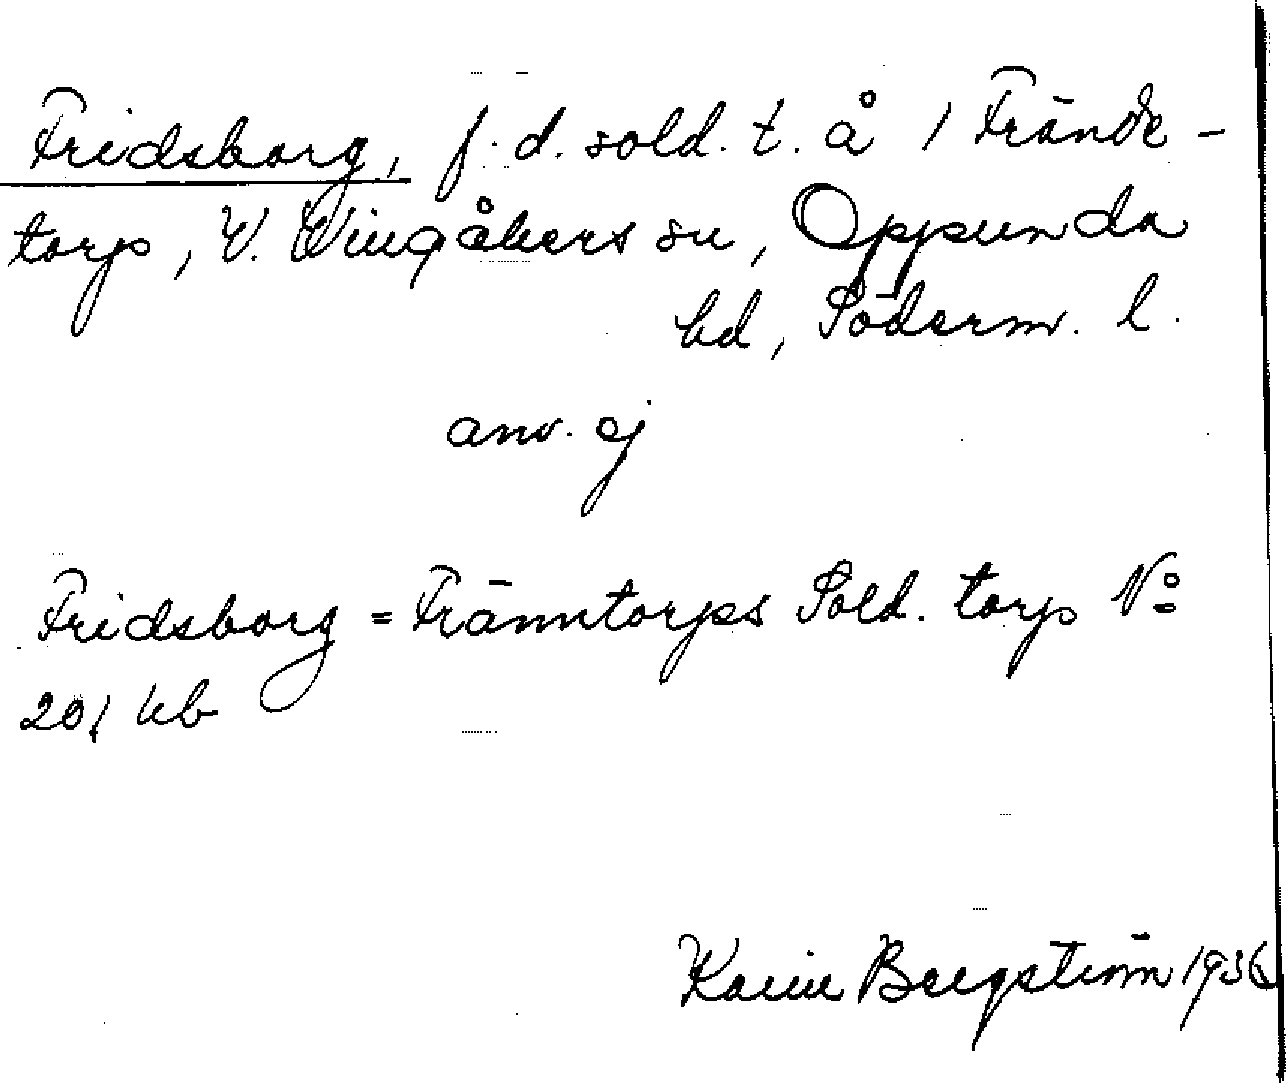 Fridsborg, f. d. sold. t. å 1 Frände-
torp, V. Wingåkers sn, Oppunda
hd, Söderm. l.
anv. ej
Fridsborg = Främntorps Sold. torp No
201 kb
Karin Bergström 1936